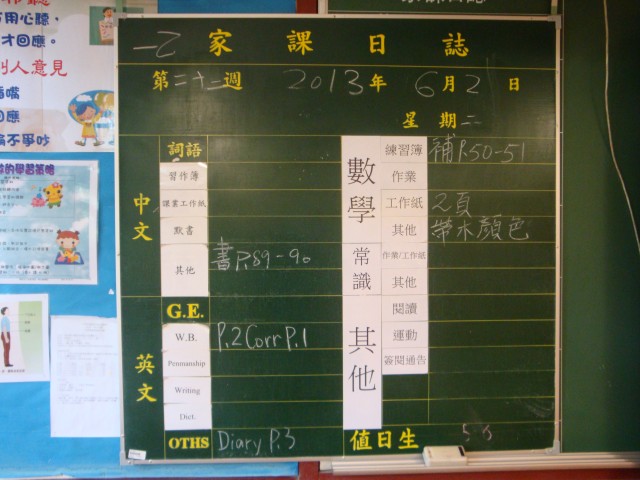 用心聽，
才回應。
別人意見
插嘴
回應
不爭吵
的學習策略
一乙 家課日誌
第二十一週 2013年 6月21日
星期二
中文
詞語
習作簿
課業工作紙
默書
其他 書P.89-90
英文
G.E.
W.B. P.2 Corr P.1
Penmanship
Writing
Dict.
OTHS Diary P.3
數學
練習簿 補P.50-51
作業
工作紙 2頁
其他 帶木顏色
常識
作業/工作紙
其他
其他
閱讀
運動
簽閱通告
值日生 5 6